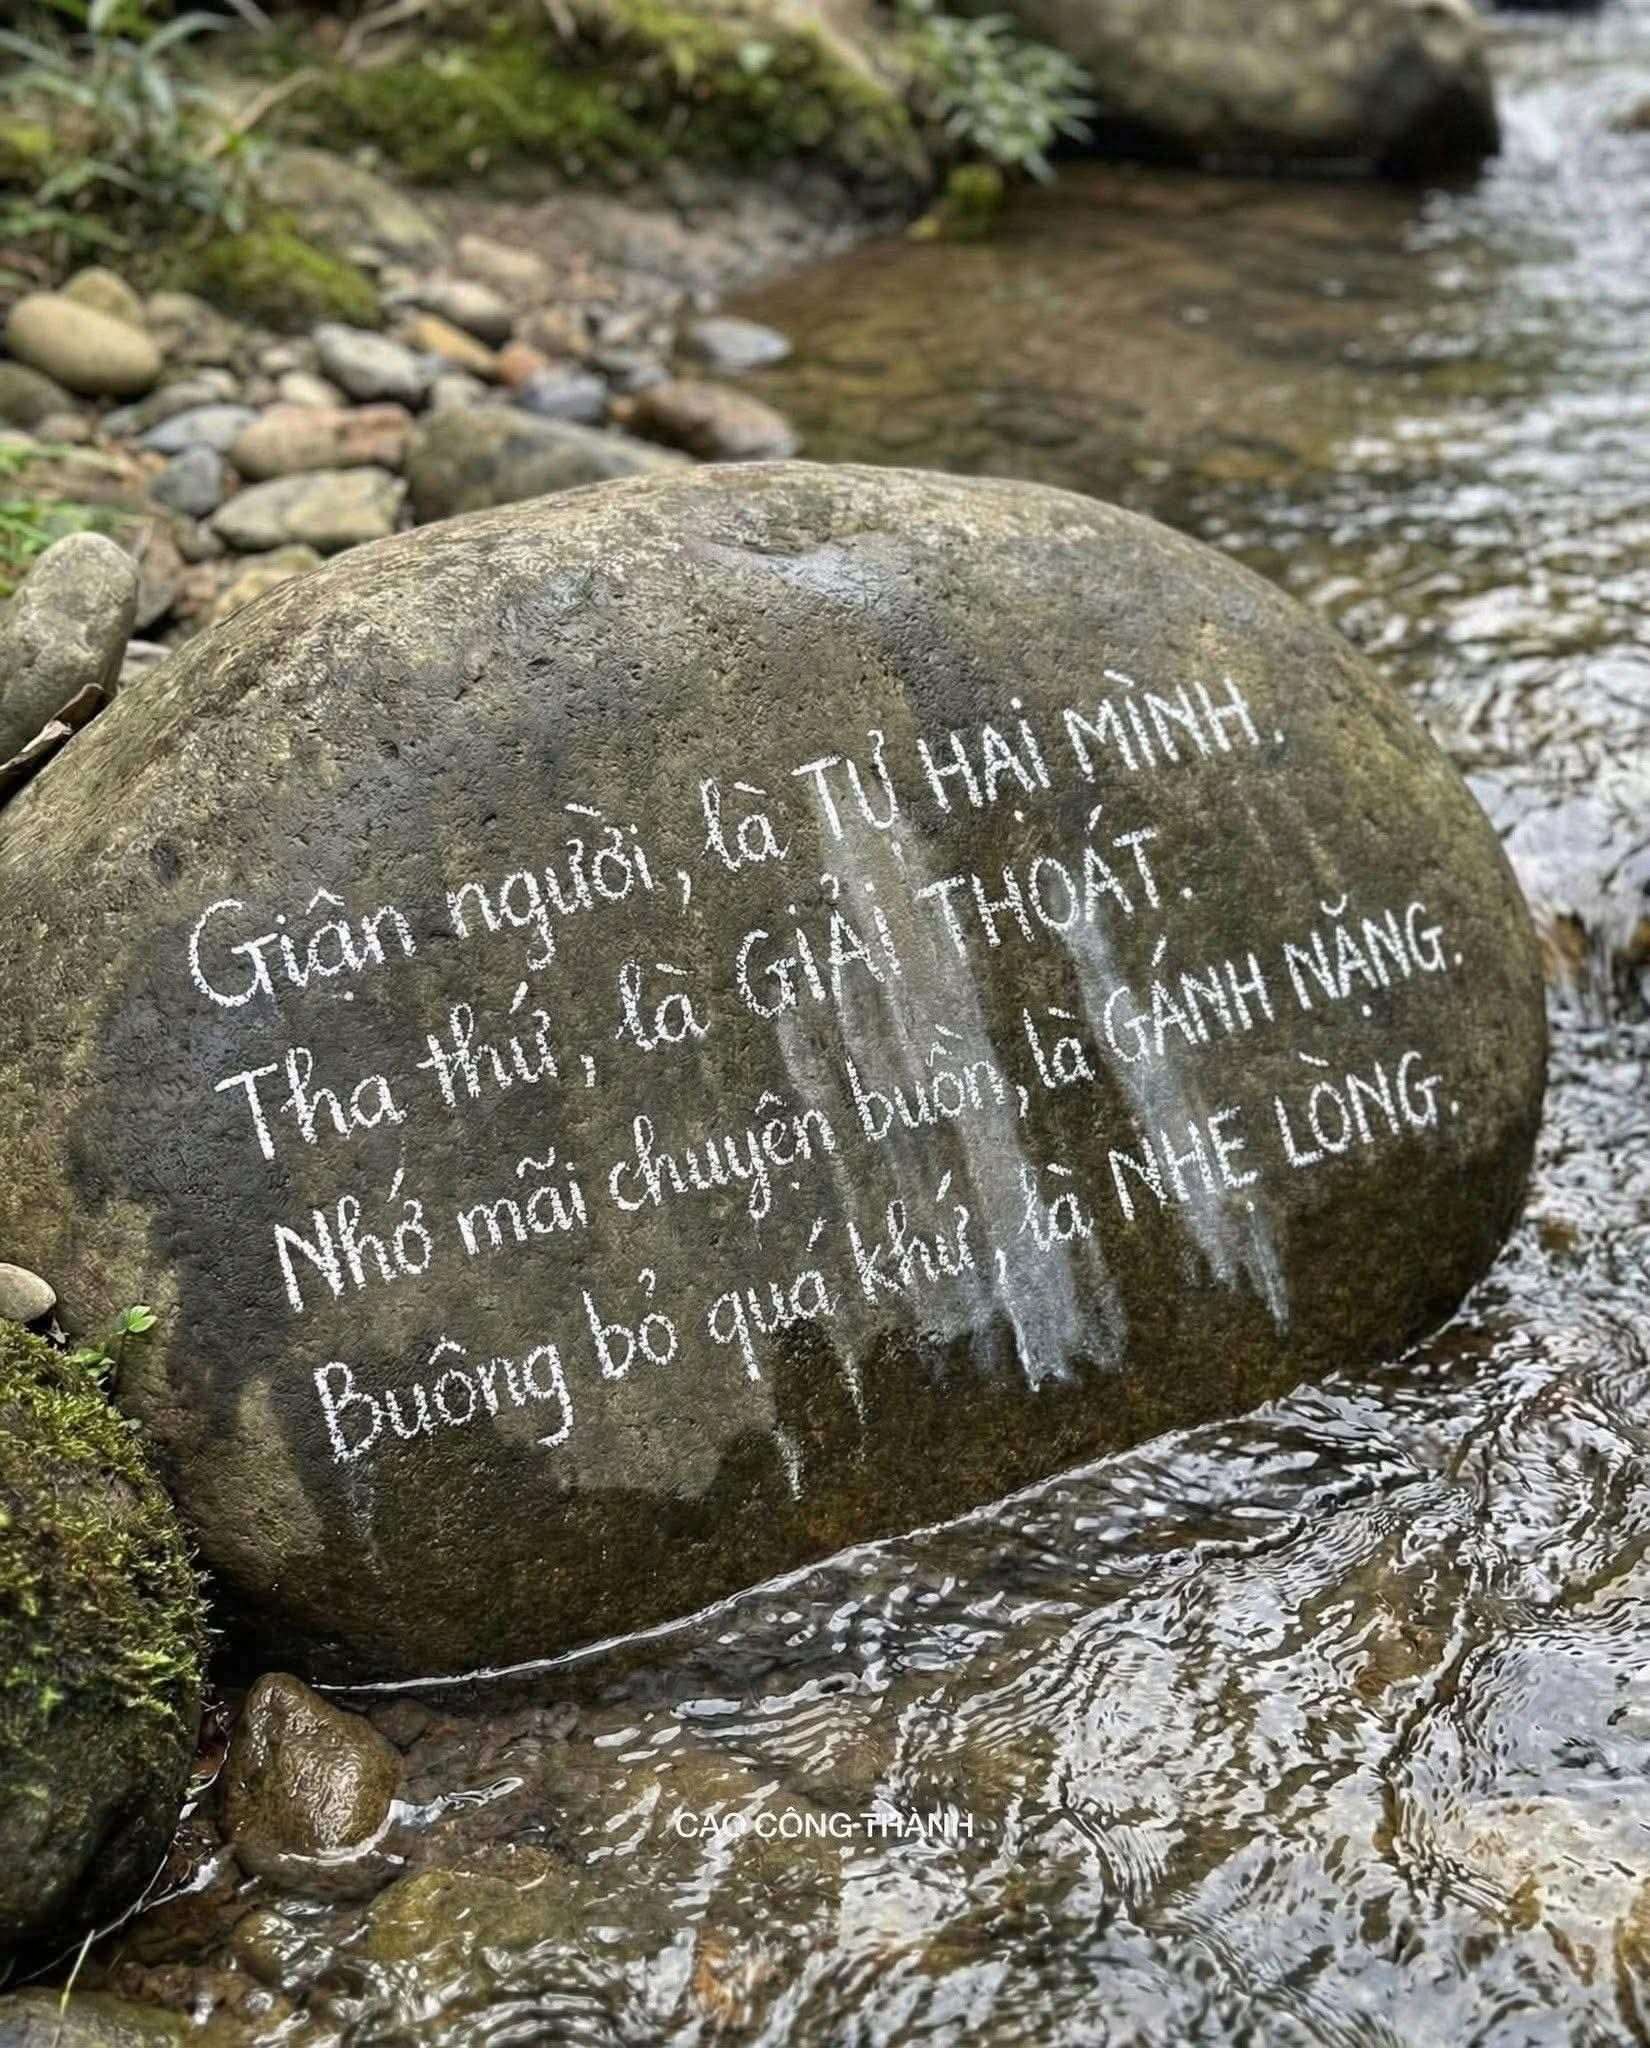 Giận người, là TỰ HẠI MÌNH.
Tha thứ, là GIẢI THOÁT.
Nhớ mãi chuyện buồn, là GÁNH NẶNG.
Buông bỏ quá khứ, là NHẸ LÒNG.
CAO CÔNG THÀNH